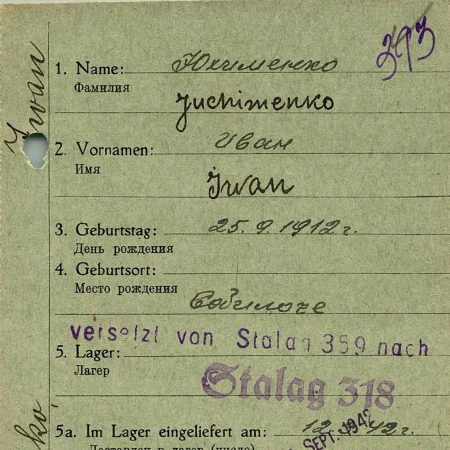 393
1. Name: Юхименко
Фамилия
Juchimenko
2. Vornamen: Иван
Имя
Iwan
3. Geburtstag: 25.9.1912 г.
День рождения
4. Geburtsort:
Место рождения
versetzt von Stalag 359 nach
5. Lager:
Лагер
Stalag 318
5a. Im Lager eingeliefert am: 12. 42 г.
SEPT. 1942
Доставлен в лагер (число)
Iwan
ko,